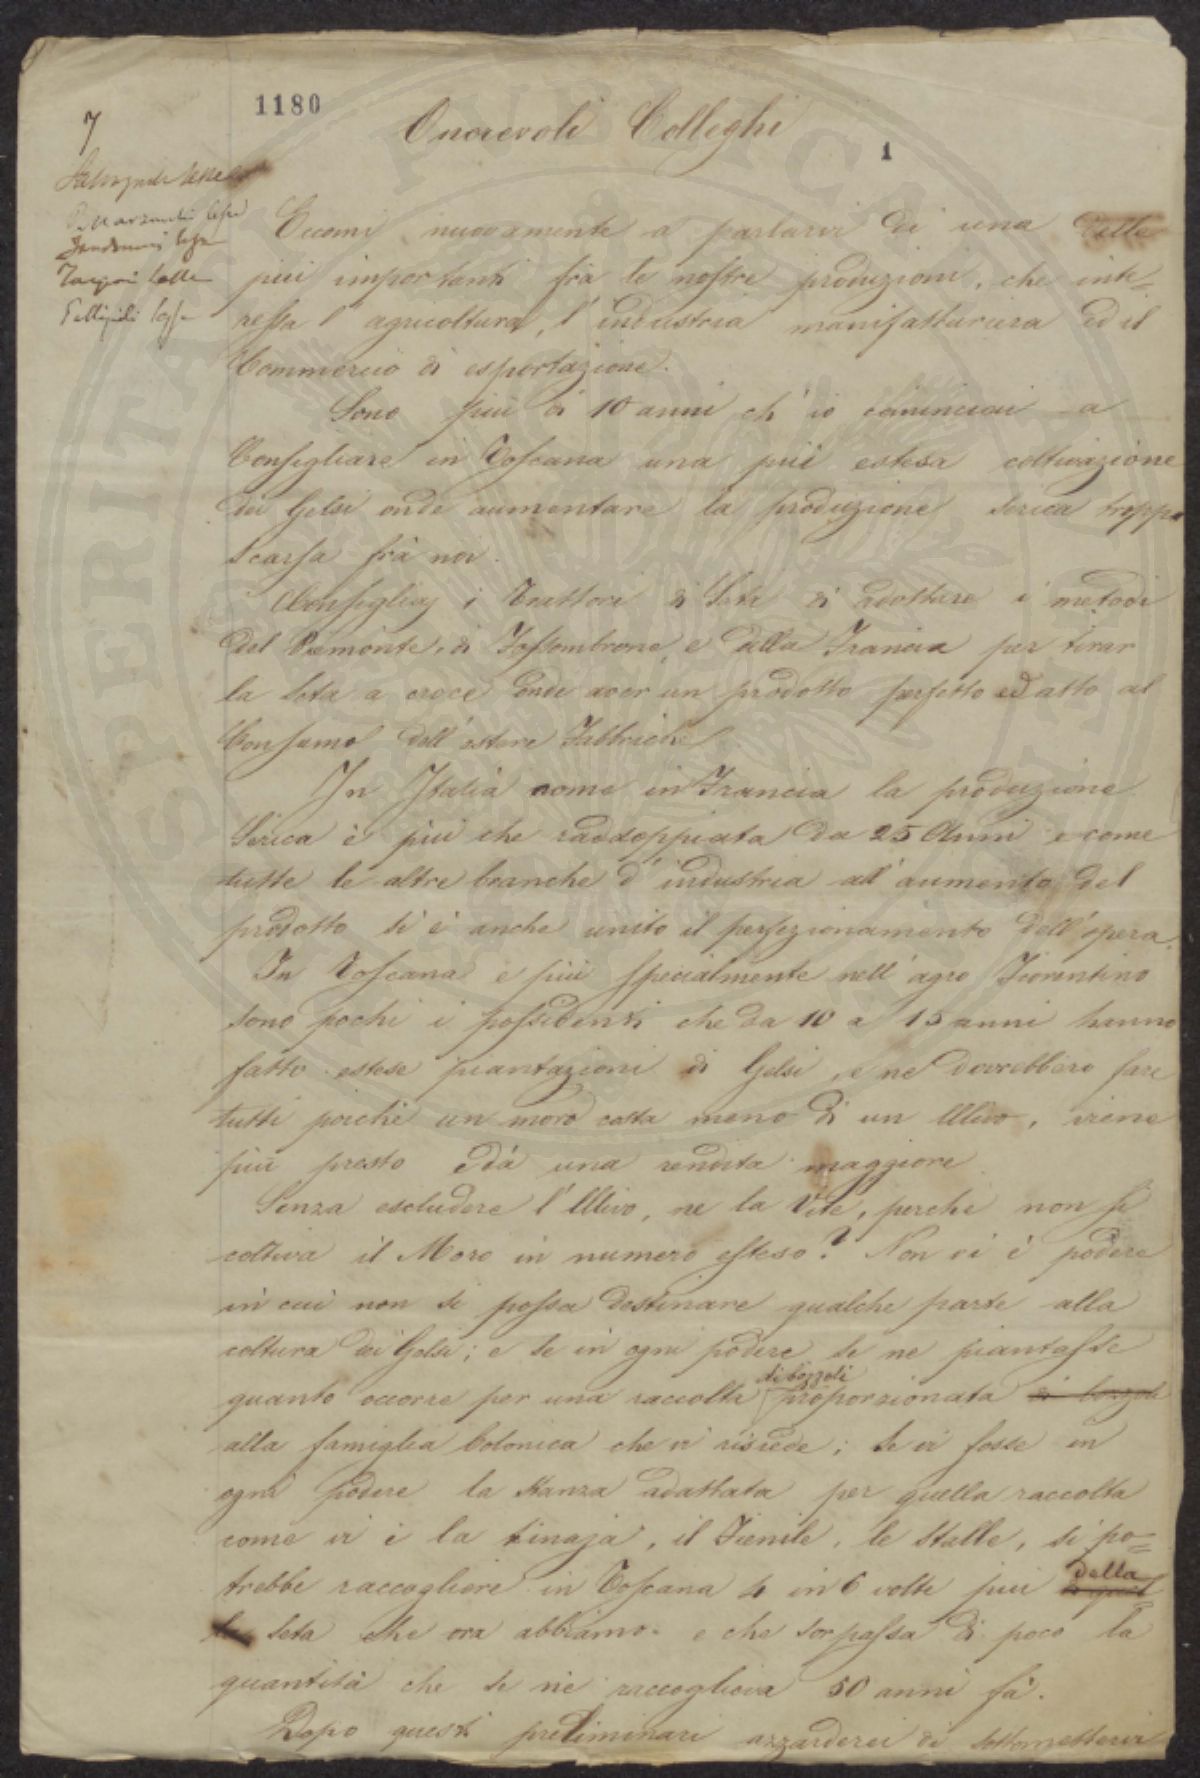 1180
Onorevoli Colleghi
1
7
Eccomi nuovamente a parlarvi di una delle
più importanti frà le nostre produzioni, che inte=
ressa l'agricoltura, l'industria manifatturiera ed il
Commercio di esportazione.
Sono più di 10 anni ch'io cominciai a
Consigliare in Toscana una più estesa coltivazione
dei Gelsi onde aumentare la produzione serica troppo
scarsa frà noi.
Consigliaj i Trattori di Seta di adottare i metodi
del Piemonte, di Fossombrone, e della Francia per tirar
la seta a croce onde aver un prodotto perfetto ed atto al
Consumo dell'estere Fabbriche.
In Italia come in Francia la produzione
Serica è più che raddoppiata da 25 Anni e come
tutte le altre branche d'industria all'aumento del
prodotto si è anche unito il perfezionamento dell'opera.
In Toscana e più specialmente nell'agro Fiorentino
sono pochi i possidenti che da 10 a 15 anni hanno
fatto estese piantazioni di Gelsi, e ne dovrebbero fare
tutti poichè un moro costa meno di un Ulivo, viene
più presto e dà una rendita maggiore.
Senza escludere l'Ulivo, ne la Vite, perchè non si
coltiva il Moro in numero esteso? Non vi è podere
in cui non si possa destinare qualche parte alla
coltura dei Gelsi; e se in ogni podere se ne piantasse
di bozzoli
quanto occorre per una raccolta proporzionata di bozzoli
alla famiglia Colonica che vi risiede; se vi fosse in
ogni podere la stanza adattata per quella raccolta
come vi è la tinaja, il Fienile, le Stalle, si po=
trebbe raccogliere in Toscana 4 in 6 volte più della
seta che ora abbiamo e che sorpassa di poco la
quantità che se ne raccoglieva 50 anni fà.
Dopo questi preliminari azzarderei di sottomettervi